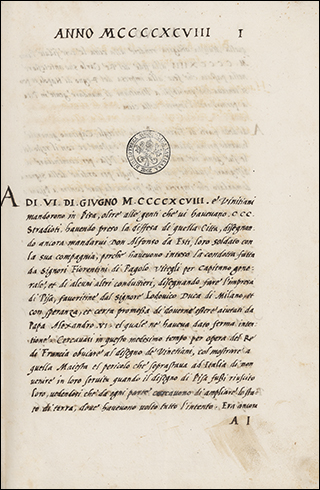 ANNO MCCCCXCVIII 1
A DI VI. DI GIVGNO M.CCCCXCVIII. e' Vinitiani
mandorono in Pisa, oltre alle genti che vi haveuano, CCC.
Stradioti, havendo preso la difesa di quella Citta, disegnan-
do ancora mandarui Don Alfonso da Esti, loro soldato con
la sua compagnia, perche haveuono inteso la condotta fatta
da Signori Fiorentini di Pagolo Vitegli per Capitano gene-
rale, et di alcuni altri condutieri, disegnando fare l'impresa
di Pisa, fauoritine dal Signore Lodouico Duca di Milano, et
con speranza, et certa promessa di dovere essere aiutati da
Papa Alexandro VI. el quale ne haueua dato ferma inten-
tione. Cercauasi in questo medesimo tempo per opera del Re
di Francia obuiare al disegno de' Vinetiani, col mostrare a
quella Maiesta el pericolo che soprastaua ad Italia di
venire in loro seruitu quando il disegno di Pisa fussi riuscito
loro, vedendosi che da ogni parte cercauono di ampliare lo sta-
to di terra, doue haueuono volto tutto l'intento. Era ancora
A I